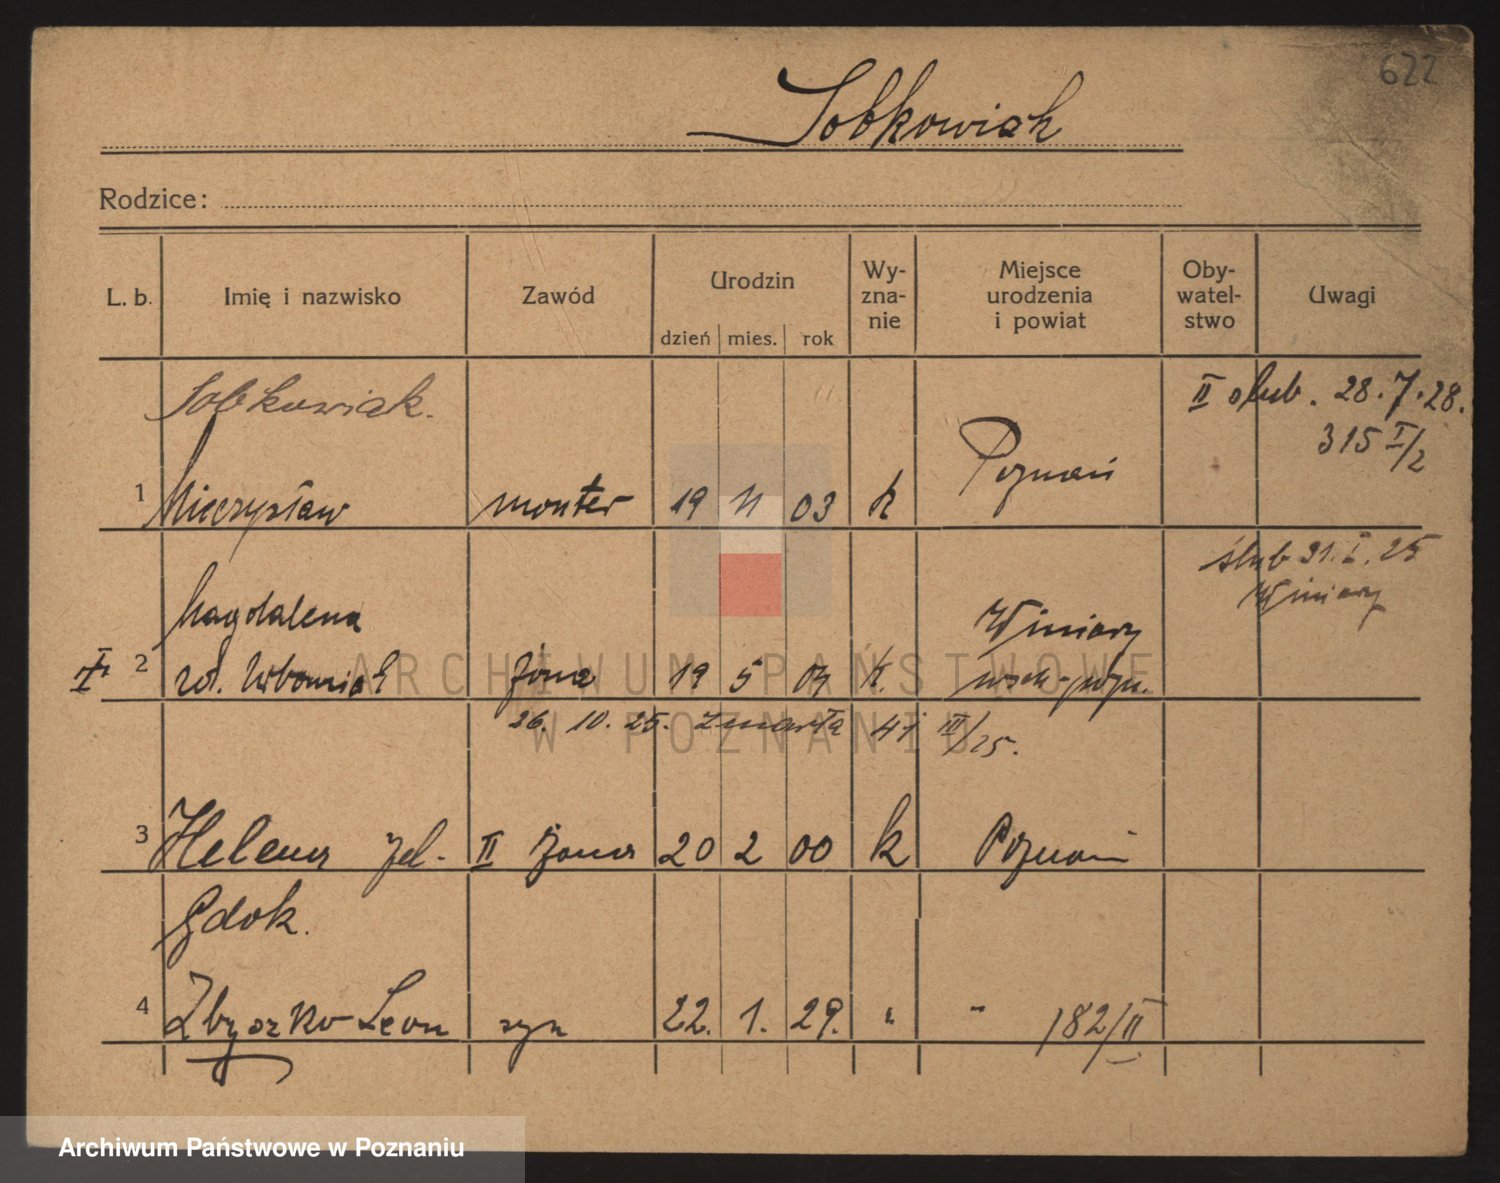 622
Sobkowiak
Rodzice:
L. b. Imię i nazwisko Zawód Urodzin dzień mies. rok Wy-zna-nie Miejsce urodzenia i powiat Oby-watel-stwo Uwagi
Sobkowiak. II ślub. 28.7.28.
315 I/2
1 Mieczysław monter 19 11 03 k Poznań
ślub 31. I. 25
Winiary
Magdalena Winiary
2 żona 19 5 k.
26. 10. 25. zmarła 41 III/25.
3 Helena II żona 20 2 00 k Poznań
Gdok.
4 Zbyszko Leon syn 22. 1. 29. " " 182/II
ARCHIWUM PAŃSTWOWE
W POZNANIU
Archiwum Państwowe w Poznaniu